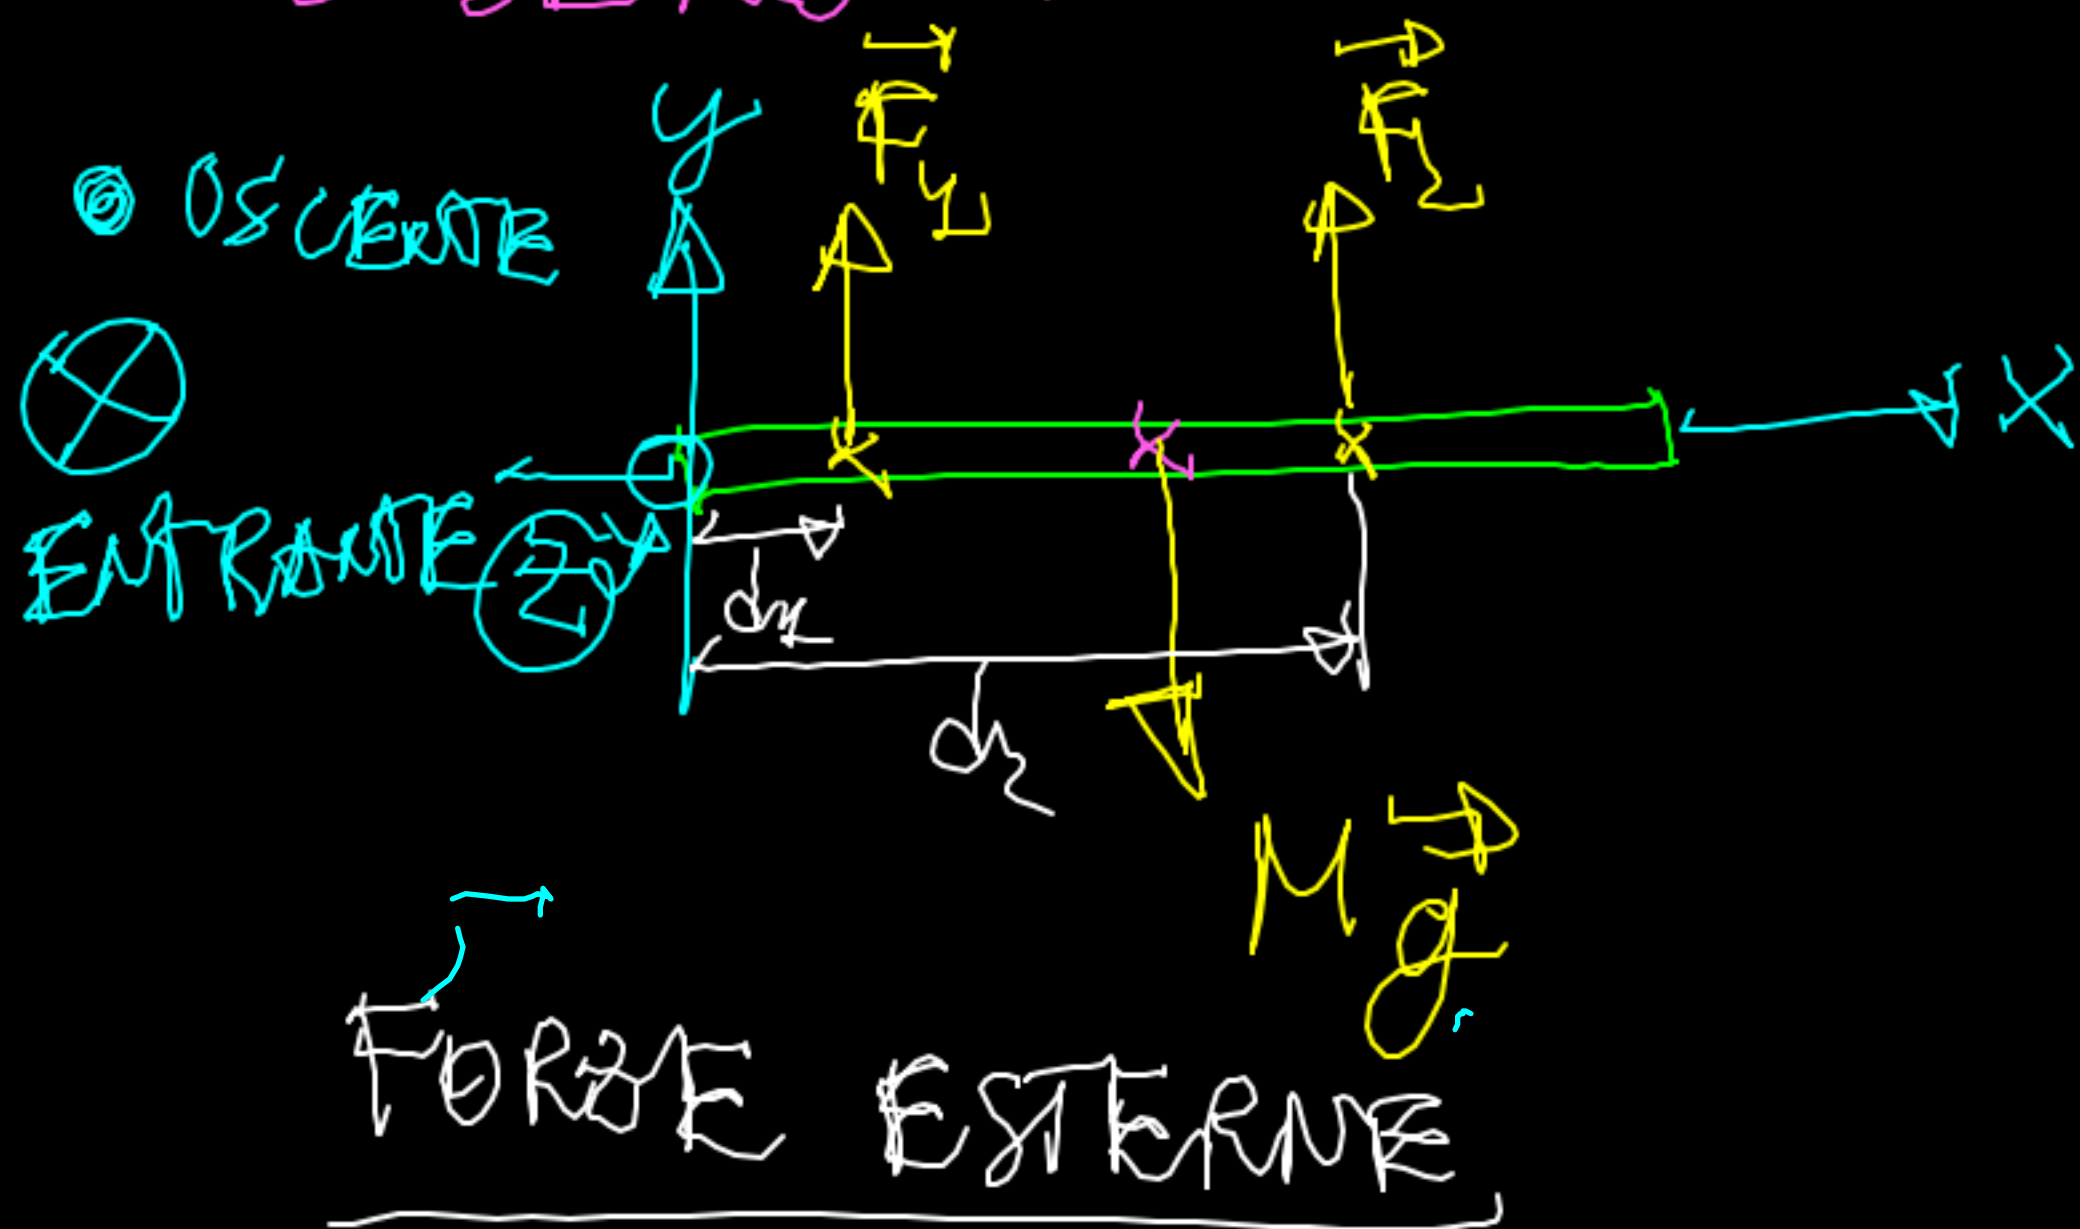 y
F₁
F₂
OSCENTE
X
ENTRANTE
Z
d₁
d₂
M g
FORZE ESTERNE